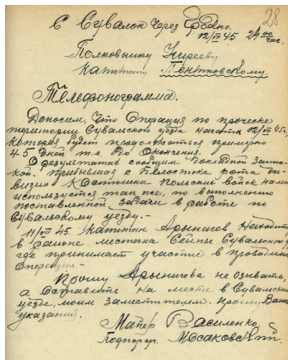 28
С Сувалок через Гродно.
12/VII 45 24 00 час.
Полковнику Кирееву
Капитану Пентковскому
Телефонограмма.
Доносим, что операция по проческе
территории Сувалской уезда начата 12/VII 45г.
которая будет продолжаться примерно
45 дней т.е. до окончания.
О результатах сообщим доклад запис-
кой. Прибывшая с Белостока рота ди-
визии Польских войск нами
используется так же, по выполнению
поставленной задачи в работе по
Сувалскому уезду.-
11/VII 45 Капитан Арынишев находит
в районе местака Сейны Сувалской у
где принимает участие в проводимо
операции.-
Прошу Арынишева не отзывать,
а оставить на месте в Сувалской
уезде, моим заместителем. прошу Ваши
указания.
Майор Василенко
Подполк. Мосаковский.